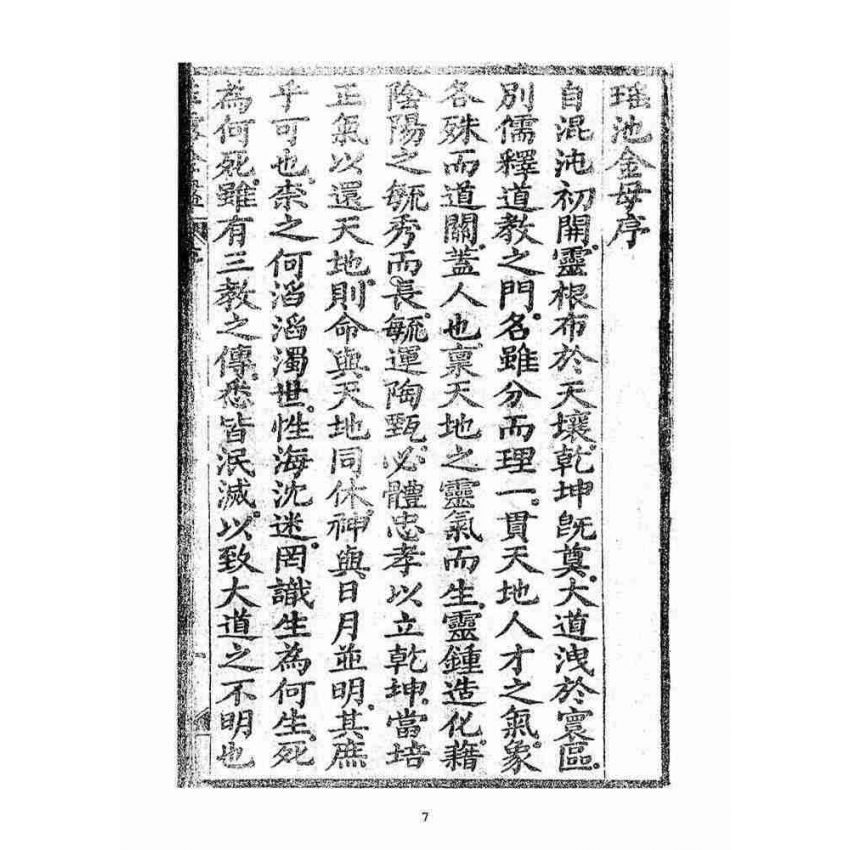 瑶池金母序
自混沌初開。靈根布於天壤。乾坤既奠。大道洩於寰區。
別儒釋道教之門。名雖分而理一。貫天地人才之氣。象
各殊而道關。蓋人也。稟天地之靈氣而生。靈鍾造化。藉
陰陽之毓秀而長。毓運陶甄。必體忠孝以立乾坤。當培
正氣以還天地。則命與天地同休。神與日月並明。其庶
乎可也。柰之何滔滔濁世。性海沈迷。罔識生為何生。死
為何死。雖有三教之傳。悉皆泯滅。以致大道之不明也
7